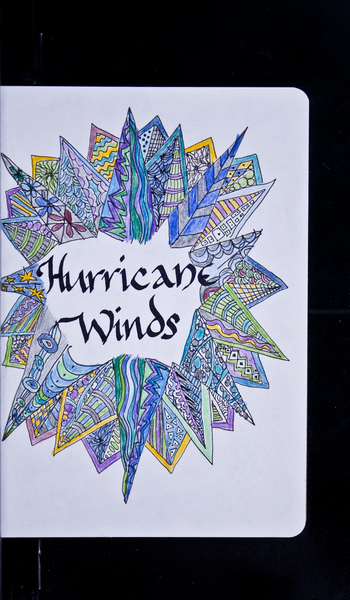 Hurricane
Winds